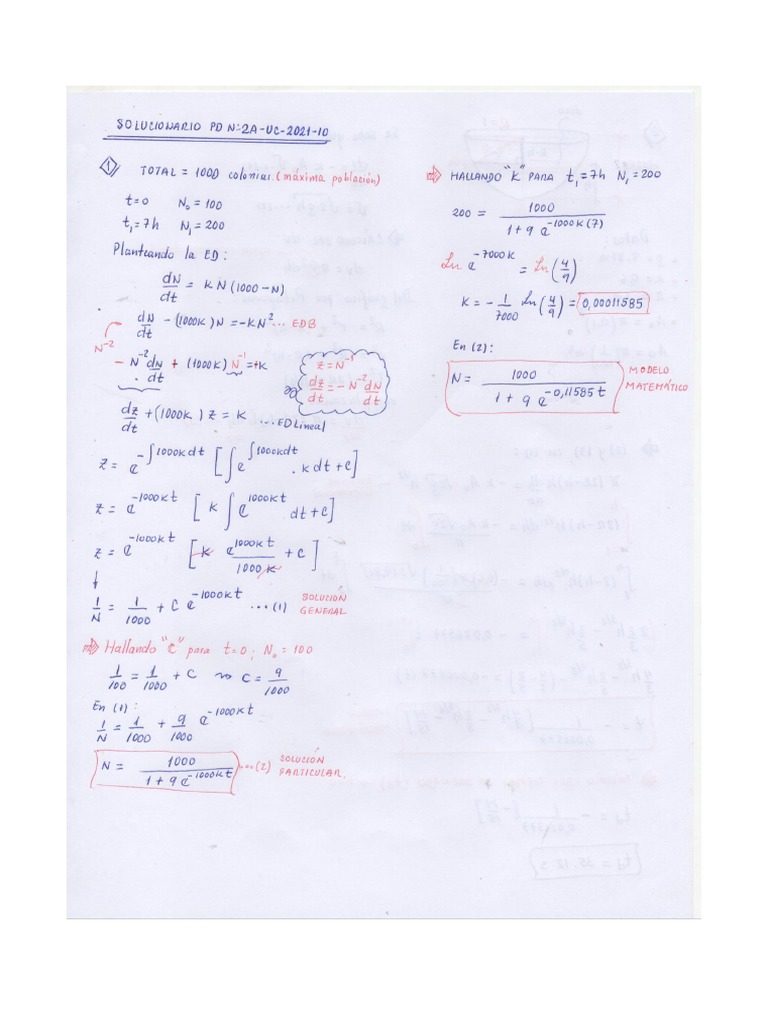 SOLUCIONARIO PD N°2A-UC-2021-10
① TOTAL = 1000 colonias (máxima población)
t=0 N₀ = 100
t₁=7h N₁ = 200
Planteando la ED:
dN/dt = KN(1000-N)
dN/dt - (1000K)N = -KN² ... EDB
N⁻²
- N⁻² dN/dt + (1000K) N⁻¹ = +K
z = N⁻¹
dz/dt = -N⁻² dN/dt
dz/dt + (1000K) z = K ... ED Lineal
z = e^(-∫1000K dt) [∫ e^(∫1000K dt) . K dt + C]
z = e^(-1000Kt) [K ∫ e^(1000Kt) dt + C]
z = e^(-1000Kt) [K e^(1000Kt)/1000K + C]
↓
1/N = 1/1000 + C e^(-1000Kt) ... (1) SOLUCIÓN GENERAL
⇒ Hallando "C" para t=0; N₀ = 100
1/100 = 1/1000 + C ⇝ C = 9/1000
En (1):
1/N = 1/1000 + 9/1000 e^(-1000Kt)
N = 1000/(1 + 9 e^(-1000Kt)) ...(2) SOLUCIÓN PARTICULAR.
⇒ HALLANDO "K" PARA t₁=7h N₁=200
200 = 1000/(1 + 9 e^(-1000K(7)))
Ln e^(-7000K) = Ln (4/9)
K = - 1/7000 Ln (4/9) = 0,00011585
En (2):
N = 1000/(1 + 9 e^(-0,11585t)) MODELO MATEMÁTICO